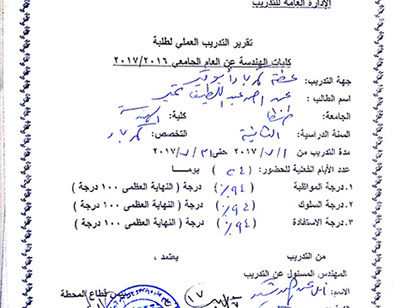 الإدارة العامة للتدريب
تقرير التدريب العملي لطلبة
كليات الهندسة عن العام الجامعي ٢٠١٧/٢٠١٦
جهة التدريب: محطة كهرباء أبو قير
اسم الطالب : عبد اللطيف
الجامعة : طنطا كلية : الهندسة
السنة الدراسية : الثانية التخصص : كهرباء
مدة التدريب من ٢٠١٧/٧/١ حتى ٢٠١٧/٧/٣١
عدد الأيام الفعلية للحضور : ( ٢٤ ) يوما
١.درجة المواظبة ( ٩٤٪ ) درجة ( النهاية العظمى 100 درجة )
٢.درجة السلوك ( ٩٤٪ ) درجة ( النهاية العظمى 100 درجة )
٣.درجة الاستفادة ( ٩٤٪ ) درجة ( النهاية العظمى 100 درجة )
من التدريب يعتمد ،
المهندس المسئول عن التدريب
رئيس قطاع المحطة